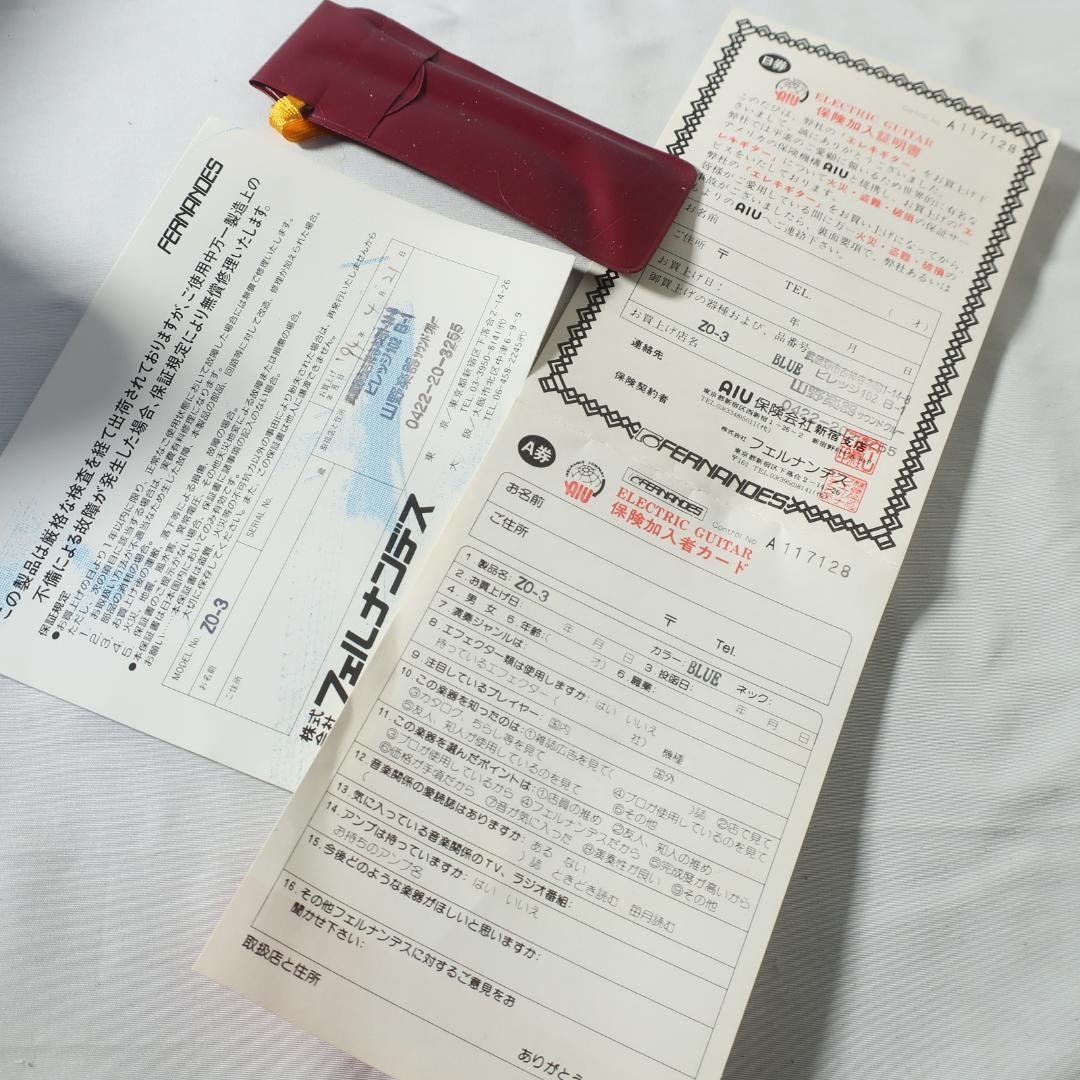 FERNANDES
この製品は厳格な検査を経て出荷されておりますが、ご使用中万一製造上の
不備による故障が発生した場合、保証規定により無償修理いたします。
保証規定
MODEL No. ZO-3
SERIAL No.
お名前
ご住所
歳
お買上げ
年月日
'94年 4月
日
取扱店と住所
ビレッジ102 B-1
山野楽器サウンドクルー
0422-20-3255
東京/東京都新宿区下落合2-14-26
TEL.03-3950-8141(代)
大阪/大阪市北区中津6-9-9
TEL.06-458-2245(代)
株式会社フェルナンデス
B券
AIU
ELECTRIC GUITAR
保険加入証明書
Control No. A 117128
このたびは、弊社の「エレキギター」をお買上げ下
さいまして、誠にありがとうございました。
弊社では平素のご愛顧に報いるため世界的に有名な
アメリカの保険機構AIUと提携し、お買上げの「エ
レキギター」について火災・盗難・破損の保証サー
ビスをいたしております。
弊社の「エレキギター」をお買い上げになってから、
皆様がご愛用している間に万一火災・盗難・破損の
事故がございましたら、裏面要項で、弊社あるいは
AIUへご連絡下さい。
お名前
(才)
ご住所 〒
TEL.
お買上げ日: 年 月
御買上げの器種および、品番号
ZO-3 BLUE
お買上げ店名
ビレッジ102 B-1
山野楽器サウンドクルー
連絡先
AIU保険会社新宿支店
東京都新宿区西新宿1-26-2
保険契約者
株式会社 フェルナンデス
東京都新宿区下落合2-14-26
〒161 TEL.03(3950)8141(代)
FERNANDES
A券
AIU
FERNANDES
ELECTRIC GUITAR
保険加入者カード
Control No. A 117128
お名前
ご住所
〒 Tel.
1. 製品名: ZO-3 カラー: BLUE ネック:
2. お買上げ日: 年 月 日 3. 投函日: 年 月 日
4. 男 女 5. 年齢:( 才) 6. 職業:
7. 演奏ジャンルは:
8. エフェクター類は使用しますか: はい いいえ
持っているエフェクター( 社) 機種
9. 注目しているプレイヤー: 国内 国外
10. この楽器を知ったのは: ①雑誌広告を見て( )誌 ②店で見て
③カタログ、ちらし等を見て ④プロが使用しているのを見て
⑤友人、知人が使用しているのを見て ⑥その他
11. この楽器を選んだポイントは: ①店員の推め ②友人、知人の推め
③プロが使用しているから ④フェルナンデスだから ⑤完成度が高いから
⑥価格が手頃だから ⑦音が気に入った ⑧演奏性が良い ⑨その他
12. 音楽関係の愛読誌はありますか: ある ない
( )誌 ときどき読む 毎月読む
13. 気に入っている音楽関係のTV、ラジオ番組:
14. アンプは持っていますか: はい いいえ
お持ちのアンプ名
15. 今後どのような楽器がほしいと思いますか:
16. その他フェルナンデスに対するご意見をお
聞かせ下さい:
取扱店と住所
ありがとう